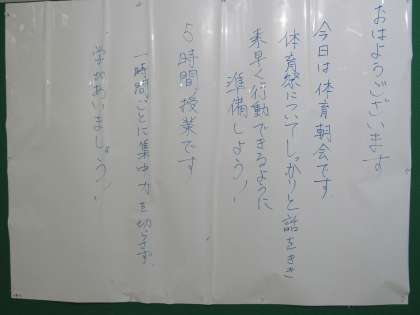 おはようございます
今日は体育朝会です
体育祭についてしっかりと話をきき
素早く行動できるように
準備しよう!
5時間授業です
一時間ごとに集中力を切らさず、
学びあいましょう!